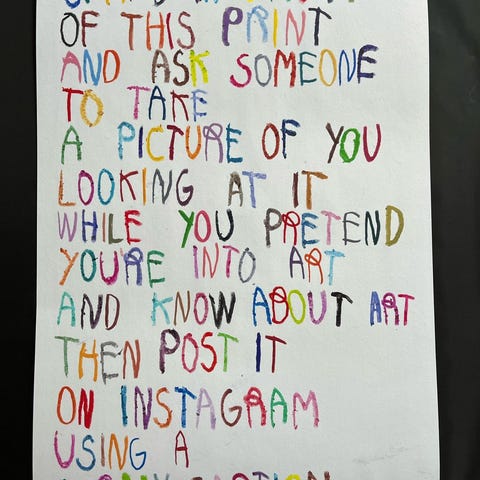 OF THIS PRINT
AND ASK SOMEONE
TO TAKE
A PICTURE OF YOU
LOOKING AT IT
WHILE YOU PRETEND
YOU'RE INTO ART
AND KNOW ABOUT ART
THEN POST IT
ON INSTAGRAM
USING A
CAPTION